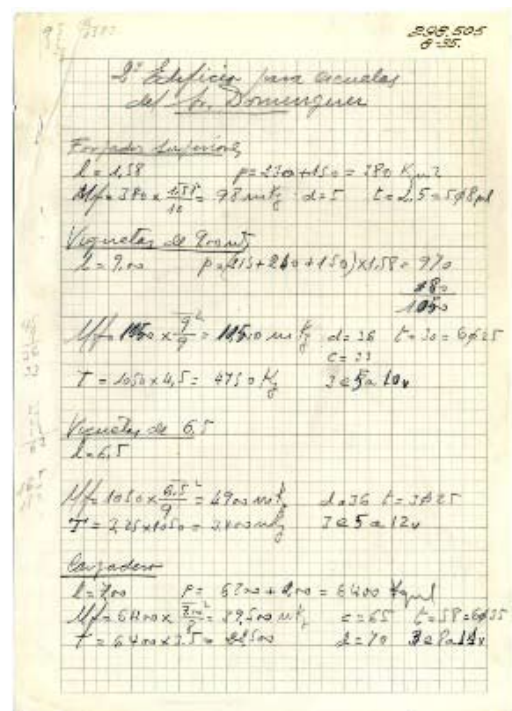 298.505
8-35.
2º Edificio para escuelas
del Sr. Domínguez
Forjados Superiores
l = 1,58 p = 230 + 150 = 380 K/m2
Mf = 380 x 1,58²/10 = 98 mKg d = 5 t = 2,5 = 5φ8 pml
Viguetas de 9.00 mts
l = 9,00 p = (215 + 240 + 150) x 1,58 = 970
80
1050
Mf = 1050 x 9²/9 = mKg d = 36 t = 30 = 6φ25
c = 33
T = 1050 x 4,5 = 4750 Kg 3 e 5 a 10v
Viguetas de 6.5
l = 6,5
Mf = 1050 x 6.5²/9 = 4900 mKg d = 36 t = 3φ25
T = 3,25 x 1050 = 3.400 mKg 3 e 5 a 12v
Cargadero
l = 7,00 p = 6200 + 200 = 6400 Kgml
Mf = 6400 x 7.00²/8 = 39,500 mKg c = 65 t = 58 = 6φ35
T = 6400 x 3.5 = 22,500 d = 70 3 e 8 a